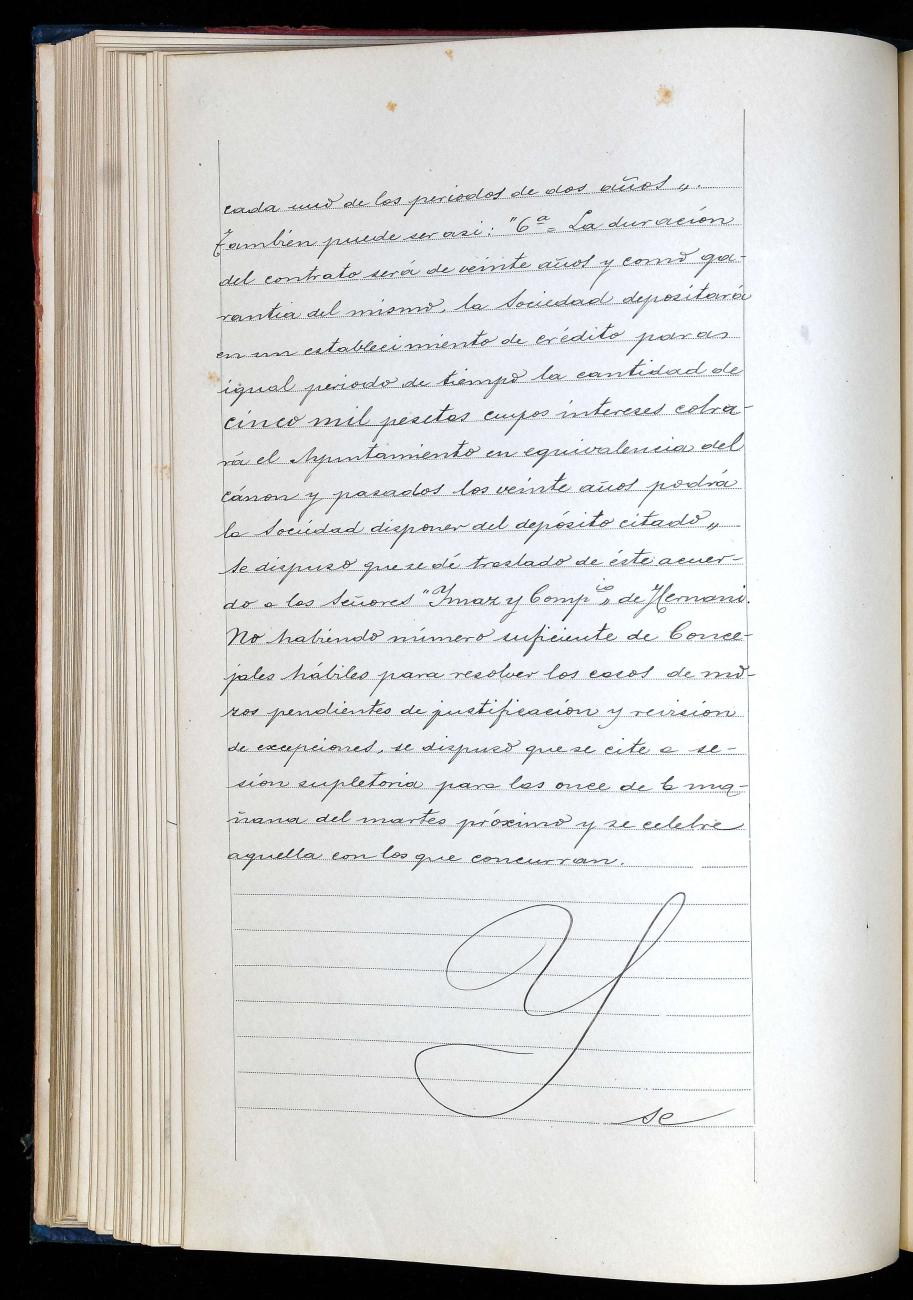 cada uno de los periodos de dos años „.
También puede ser asi: "6ª = La duración
del contrato será de veinte años y como ga-
rantia del mismo, la Sociedad depositará
en un establecimiento de crédito para
igual periodo de tiempo la cantidad de
cinco mil pesetas cuyos intereses cobra-
rá el Ayuntamiento en equivalencia del
cánon y pasados los veinte años podrá
la Sociedad disponer del depósito citado „
Se dispuso que se dé traslado de éste acuer-
do a los Señores "Ymaz y Compia„ de Hernani.
No habiendo número suficiente de Conce-
jales hábiles para resolver los casos de mo-
zos pendientes de justificación y revision
de excepciones, se dispuso que se cite a se-
sión supletoria para las once de la ma-
ñana del martes próximo y se celebre
aquella con los que concurran.
Y
se